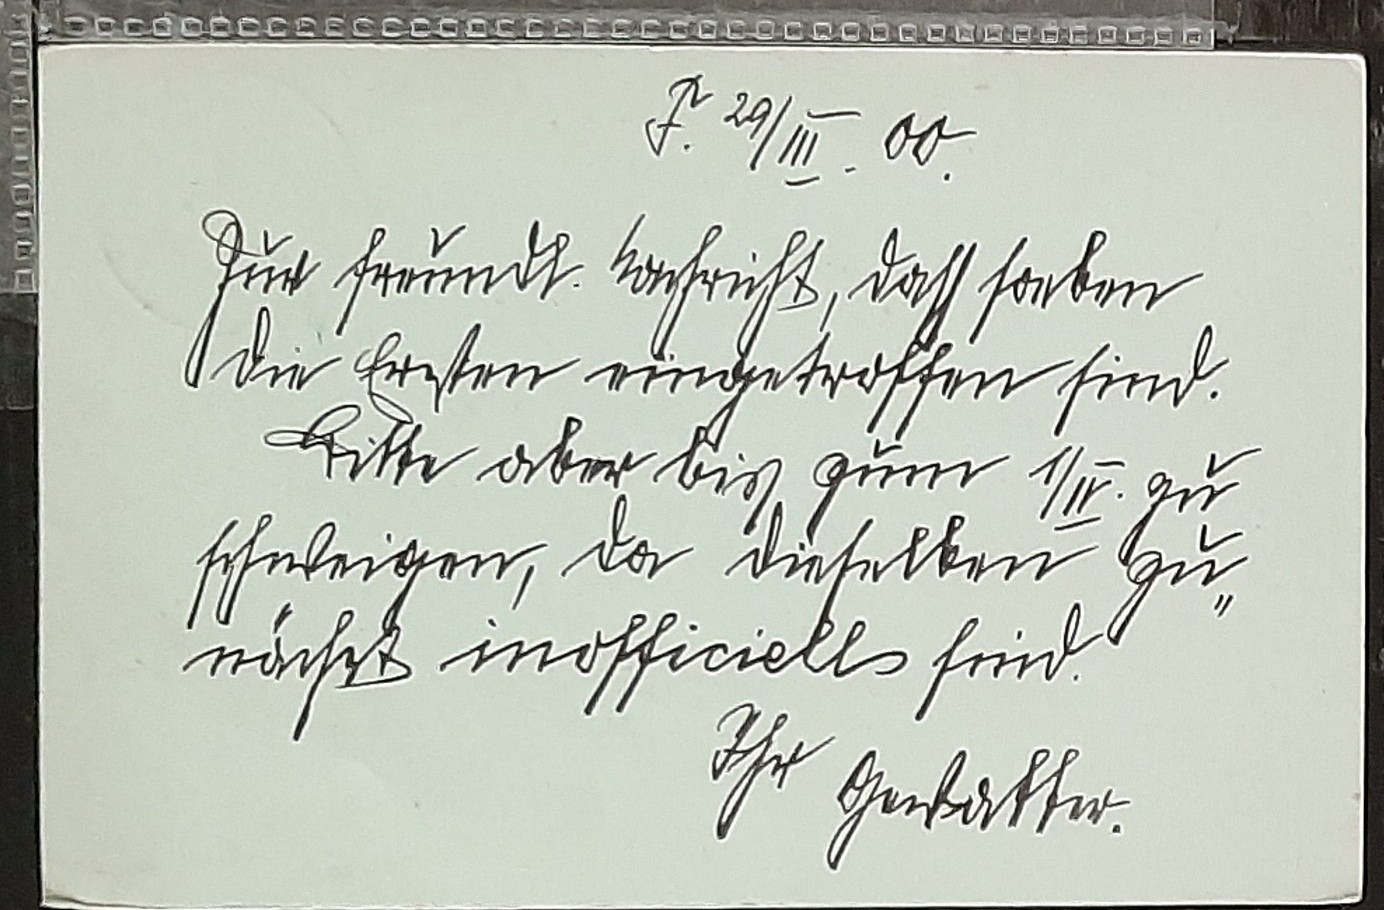 F. 29/III. 00.
Zur freundl. Nachricht, dass soeben
die Ersten eingetroffen sind.
Bitte aber bis zum 1/IV. zu
schweigen, da dieselben zu„
nächst inofficiells sind.
Ihr Gevatter.